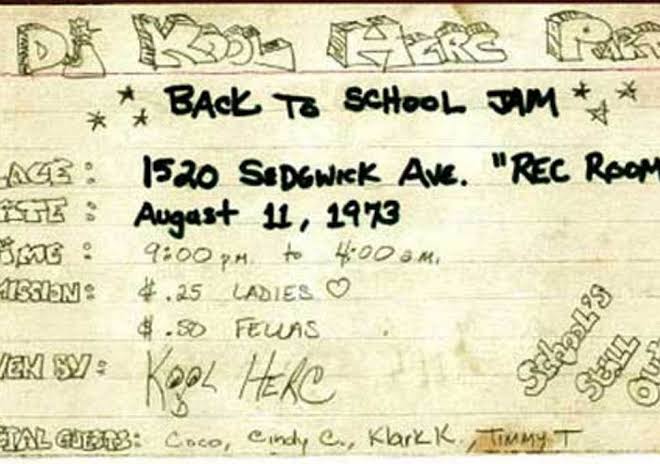 DJ KOOL HERC PAR
BACK TO SCHOOL JAM
LACE : 1520 SEDGWICK AVE. "REC ROOM
ATE : August 11, 1973
TIME : 9:00 p.m. to 4:00 a.m.
MISSION : $ .25 LADIES ♡
$ .50 FELLAS
VEN BY : KOOL HERC
SCHOOL'S
STILL
OUT
CIAL GUESTS: Coco, Cindy C., Klark K., TIMMY T